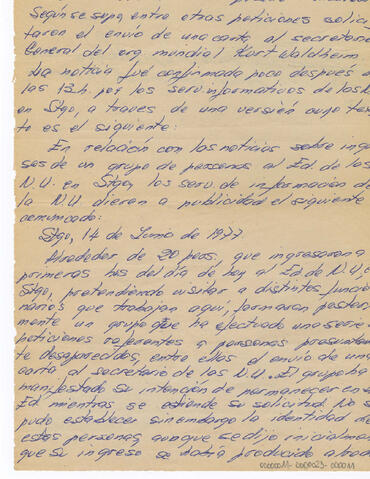 Según se supo, entre otras peticiones solici
taron el envío de una carta al secretario
General del org. mundial Kurt Waldheim
La noticia fué confirmada poco después a
las 13 h. por los serv. informativos de las N.
en Stgo, a traves de una versión cuyo tex
to es el siguiente:
En relación con las noticias sobre ingre
sos de un grupo de personas al Ed. de las
N.U. en Stgo, los serv. de información de
la N.U. dieron a publicidad el siguiente
comunicado:
Stgo, 14 de Junio de 1977
Alrededor de 20 peas, que ingresaron a
primeras hrs del día de hoy al Ed. de N.U. en
Stgo, pretendiendo visitar a distintos funcio
narios que trabajan aquí, formaron posterior
mente un grupo que ha efectuado una serie
peticiones referentes a personas presuntamen
te desaparecidos, entre ellas el envío de una
carta al secretario de las N.U. El grupo ha
manifestado su intención de permanecer en el
Ed mientras se atiende su solicitud. No se
pudo establecer sin embargo la identidad de
estas personas, aunque se dijo inicialmen
que su ingreso se había producido alrede
000001- 000023- 000011